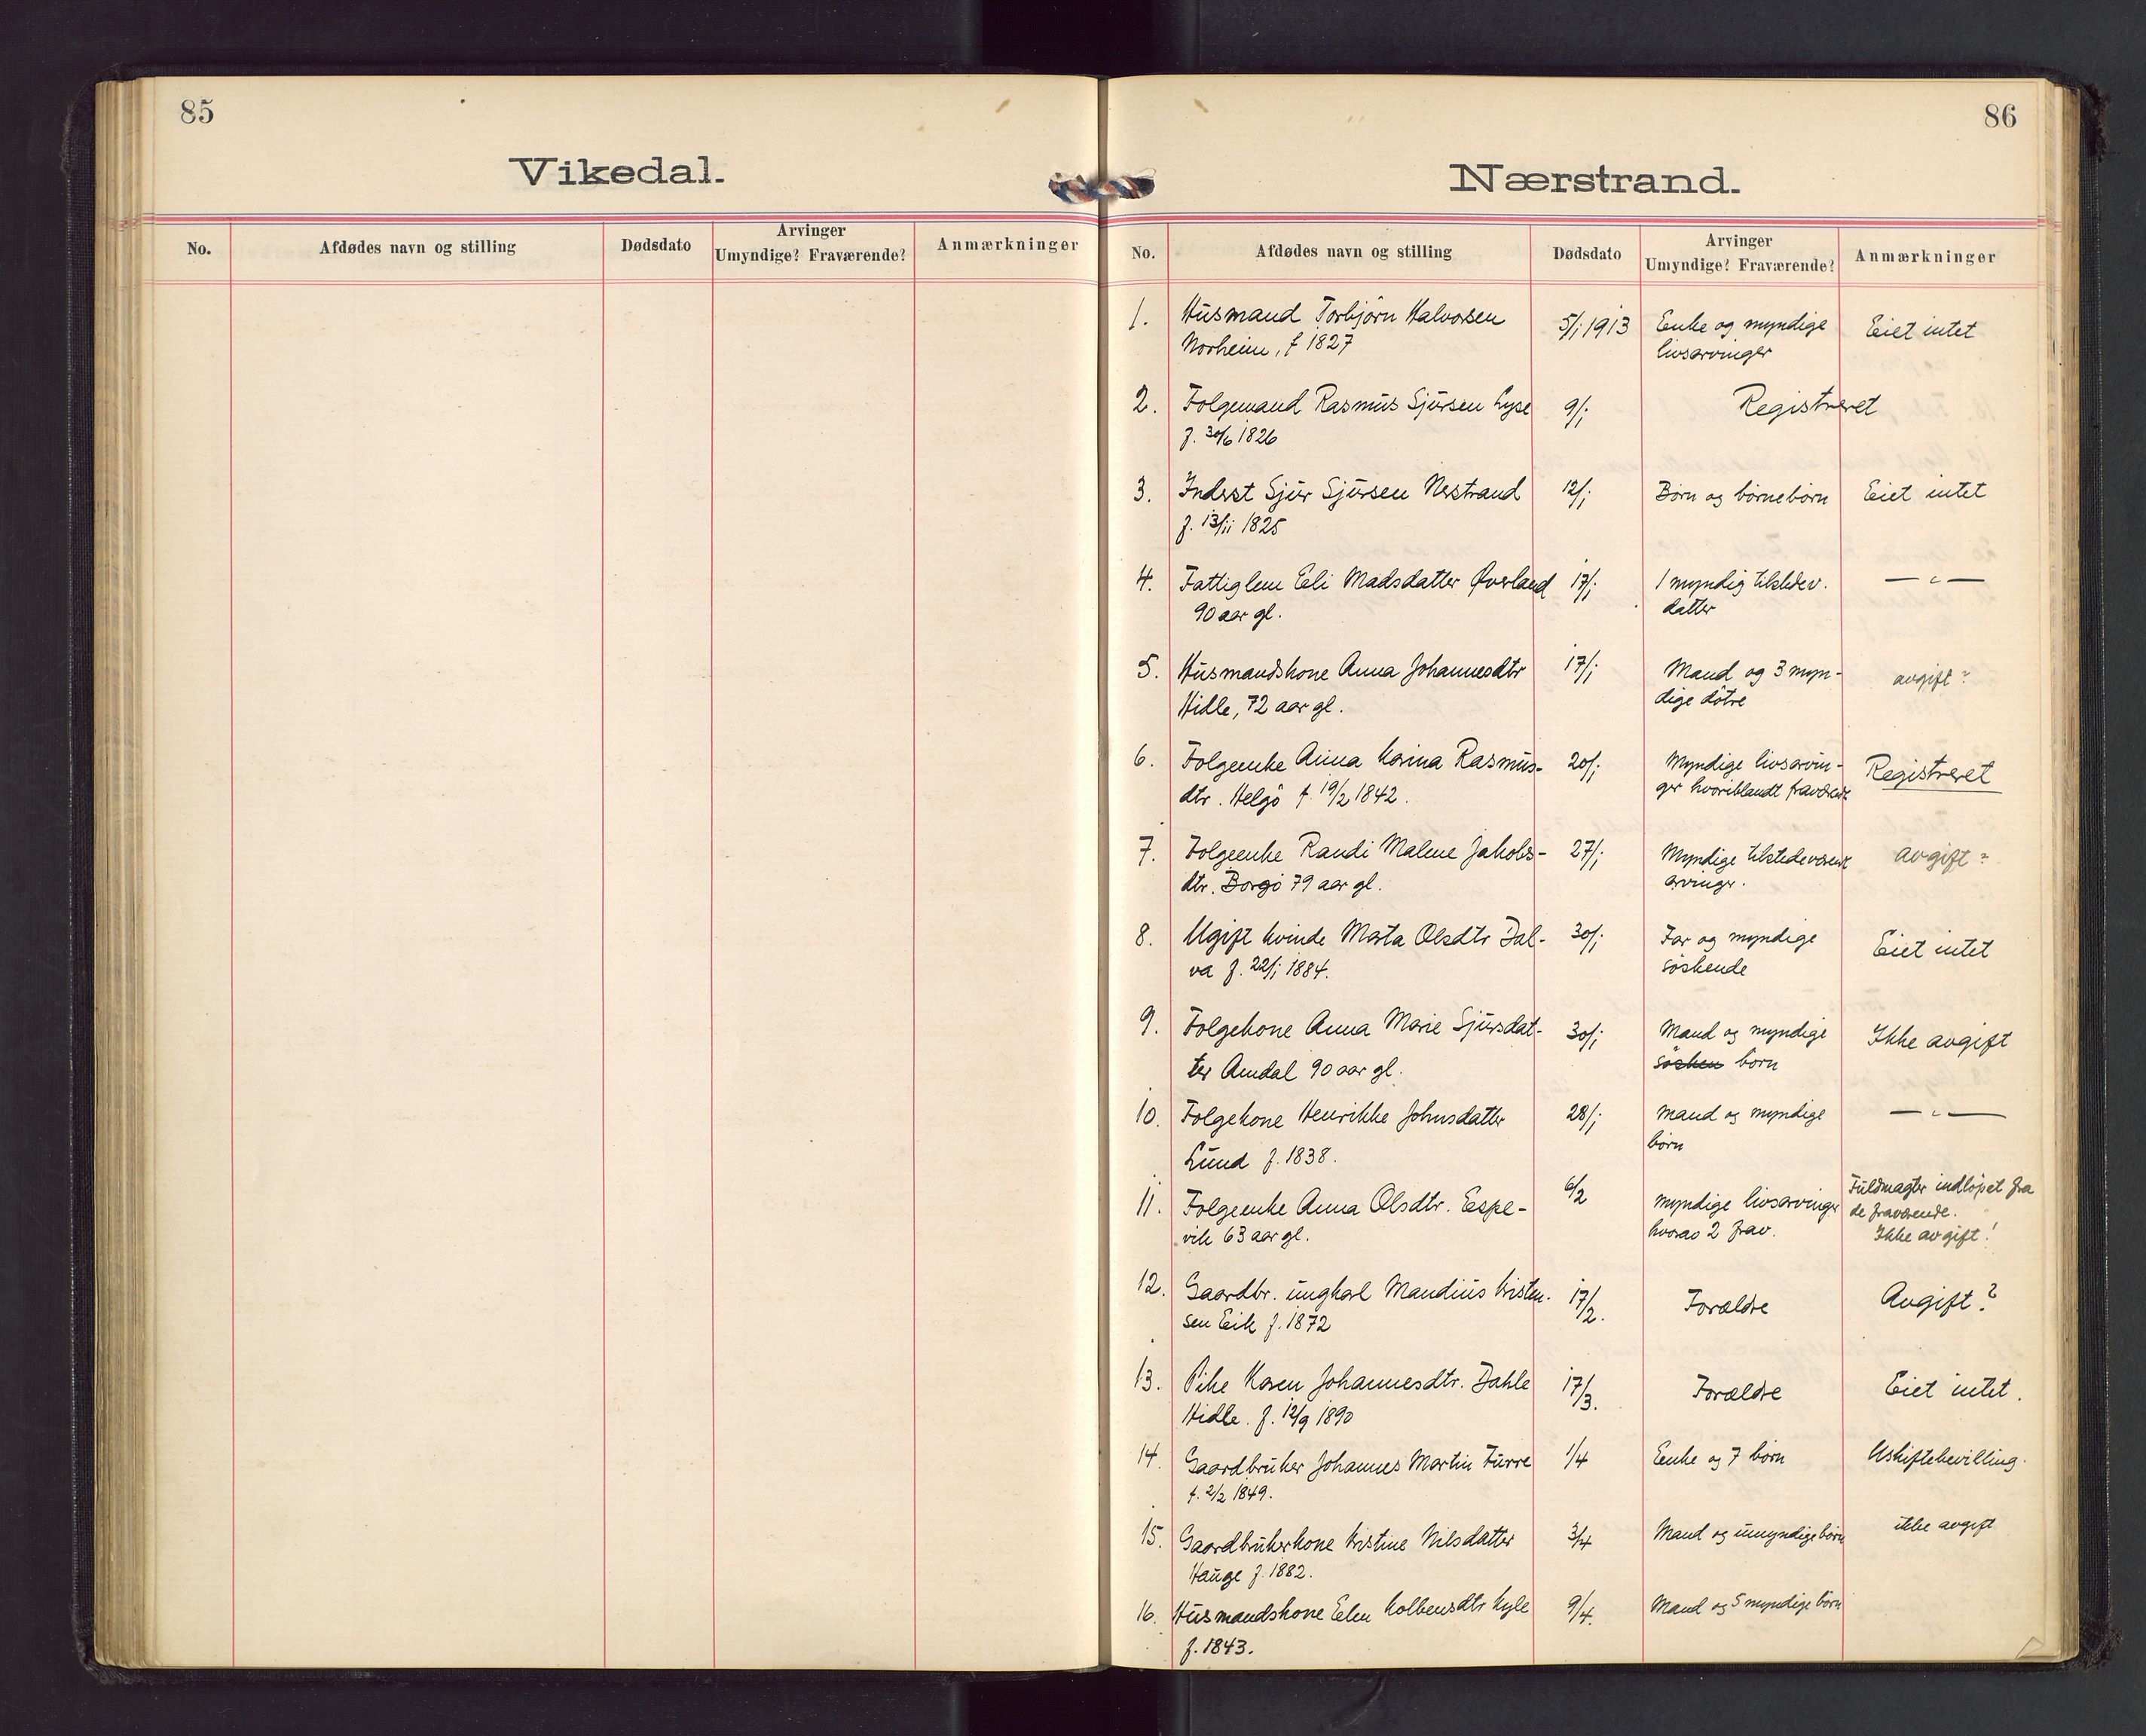 85
Vikedal.
No. Afdødes navn og stilling Dødsdato Arvinger Umyndige? Fraværende? Anmærkninger
86
Nærstrand.
No. Afdødes navn og stilling Dødsdato Arvinger Umyndige? Fraværende? Anmærkninger
1. Husmand Torbjørn Halvorsen 5/1 1913 Enke og myndige Eiet intet
Norheim, f 1827 livsarvinger
2. Folgemand Rasmus Sjursen Lyse 9/1 Registreret
f. 30/6 1826
3. Inderst Sjur Sjursen Nestrand 12/1 Børn og børnebørn Eiet intet
f. 13/11 1825
4. Fattiglem Eli Madsdatter Øverland 17/1 1 myndig tilstedev. — " —
90 aar gl. datter
5. Husmandskone Anna Johannesdtr 17/1 Mand og 3 myn- avgift?
Hidle, 72 aar gl. dige døtre
6. Folgeenke Anna Karina Rasmus- 20/1 Myndige livsarvin- Registreret
dtr. Helgø f. 19/2 1842. ger hvoriblandt fraværende
7. Folgeenke Randi Malene Jakobs- 27/1 Myndige tilstedeværende avgift?
dtr. Borgø 79 aar gl. arvinger.
8. Ugift kvinde Marta Olsdtr Dal- 30/1 Far og myndige Eiet intet
va f. 22/1 1884. søskende
9. Folgekone Anna Marie Sjursdat- 30/1 Mand og myndige Ikke avgift
ter Amdal 90 aar gl. søsken børn
10. Folgekone Henrikke Johnsdatter 28/1 Mand og myndige — " —
Lund f. 1838. børn
11. Folgeenke Anna Olsdtr. Espe- 6/2 myndige livsarvinger Fuldmagter indløpet fra
vik 63 aar gl. hvorav 2 frav. de fraværende.
Ikke avgift!
12. Gaardbr. ungkarl Mandius Kristen- 17/2. Forældre Avgift?
sen Eik f. 1872
13. Pike Karen Johannesdtr. Dahle 17/3. Forældre Eiet intet.
Hidle. f. 12/9 1890
14. Gaardbruker Johannes Martin Furre 1/4 Enke og 7 børn Uskiftebevilling.
f. 2/2 1849.
15. Gaardbrukerkone Kristine Nilsdatter 3/4 Mand og umyndige børn ikke avgift
Hauge f. 1882.
16. Husmandskone Elen Kolbensdtr Kyle 9/4. Mand og 5 myndige børn
f. 1843.